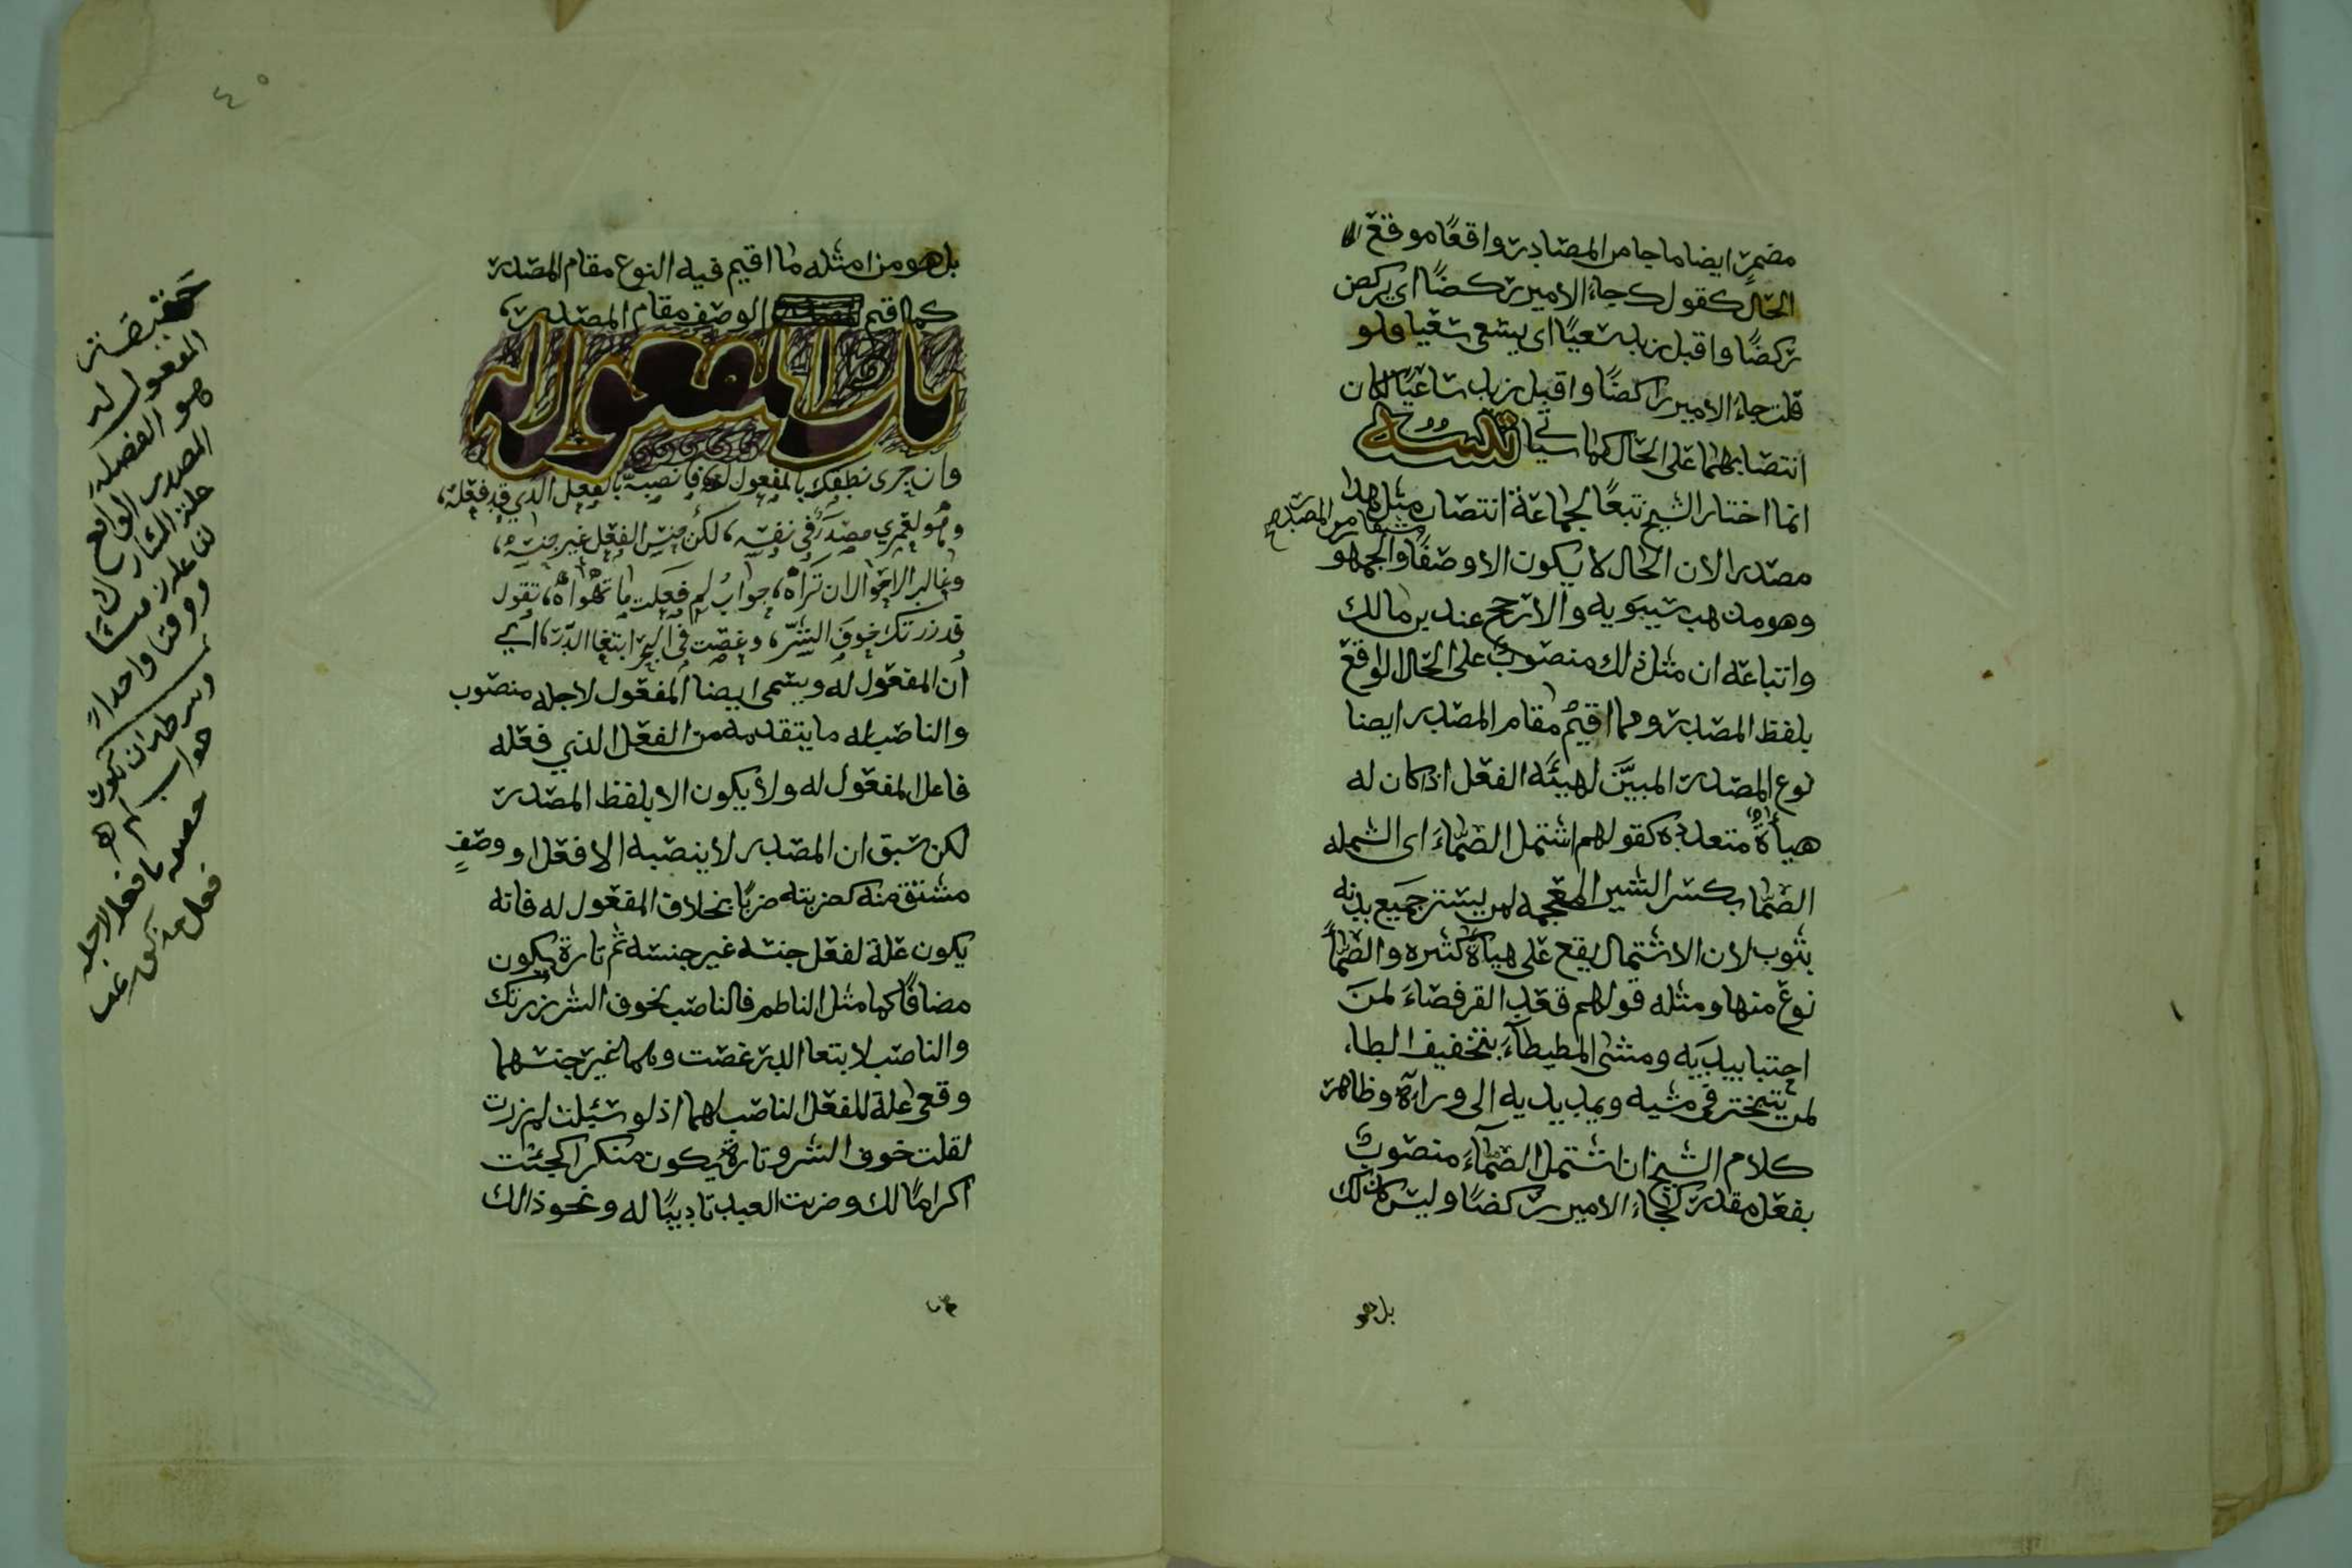 مضمرٍ ايضا ما جا من المصادر واقعًا موقع
الحال كقولك جاء الامير ركضًا اي يركض
ركضًا واقبل زيد سعيًا اى يسعى سعيا ولو
قلت جاء الامير راكضًا واقبل زيد ساعيًا لكان
انتصابهما على الحال كما سياتي تنبيه
انما اختار الشيخ تبعًا لجماعة انتصاب مثل هذا
مصدرا لان الحال لا يكون الا وصفًا والجمهو
وهو مذهب سيبويه والارجح عند بن مالك
واتباعه ان مثل ذلك منصوبٌ على الحال الواقع
بلفظ المصدر ومما اقيم مقام المصدر ايضا
نوع المصدر المبيَّن لهيئة الفعل اذا كان له
هيأةٌ متعددة كقولهم اشتمل الصَّمَّاءَ اى الشمله
الصّمّا بكسر الشين المعجمه لمن يستتر جميع بدنه
بثوب لان الاشتمال يقع على هيأة كثيره والصّمّاُ
نوعٌ منها ومثله قولهم قعَد القرفصَاءَ لمنَ
احتبا بيدَيه ومشى المطيطآءَ بتخفيف الطاء
لمن يتبختر في مشيه ويمد يديه الى ورائه وظاهر
كلام الشيخ ان اشتمل الصَّمَّاءَ منصوبٌ
بفعل مقدر كجاءَ الامير ركضًا وليس كذلك
بل هو
٤٠
بل هو من امثله ما اقيم فيه النوع مقام المصدر
كما اقيم الوصف مقام المصدر
باب المفعول له
وان جرى نطقك بالمفعول له فانصبه بالفعل الذي قد فعله
وهو لعمري مصدرٌ في نفسه لكن جنس الفعل غير جنسه
وغالب الاحوال ان تراه جوابُ لم فعلت ما تهواه تقول
قد زرتك خوفَ الشرّ وغصت في البحر ابتغا الدّرّ اي
ان المفعول له ويسمى ايضا المفعول لاجله منصوب
والناصب له ما يتقدمه من الفعل الذي فعله
فاعل المفعول له ولا يكون الا بلفظ المصدر
لكن سبق ان المصدر لا ينصبه الا فعل او وصفٍ
مشتق منه كضربته ضربًا بخلاف المفعول له فانه
يكون علة لفعل جنسه غير جنسه ثم تارة يكون
مضافًا كما مثل الناظم فالناصب لخوف الشر زرتك
والناصب لابتغا الدر غصت وهما غير جنسهما
وقعي علة للفعل الناصب لهما اذ لو سئلت لم زرت
لقلت خوف الشر وتارةً يكون منكرا كجئت
اكرامًا لك وضربت العبد تاديبًا له ونحو ذالك
المفعول له
هو الفضله
المصدر الواقع
ووقتا واحدا
وشرطه ان يكون
جواب لم